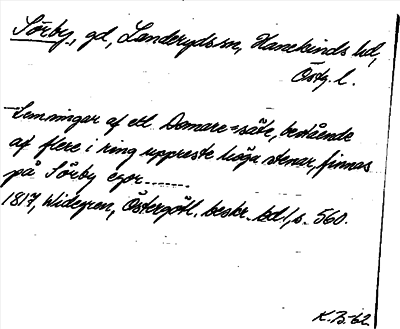 Sörby, gd, Landeryds sn, Hanekinds hd,
Östg. l.
Lemningar af ett Domare=säte, bestående
af flere i ring uppreste höga stenar, finnas
på Sörby egor........
1817, Widegren, Östergötl. beskr. bd 1, s. 560.
K.B-62